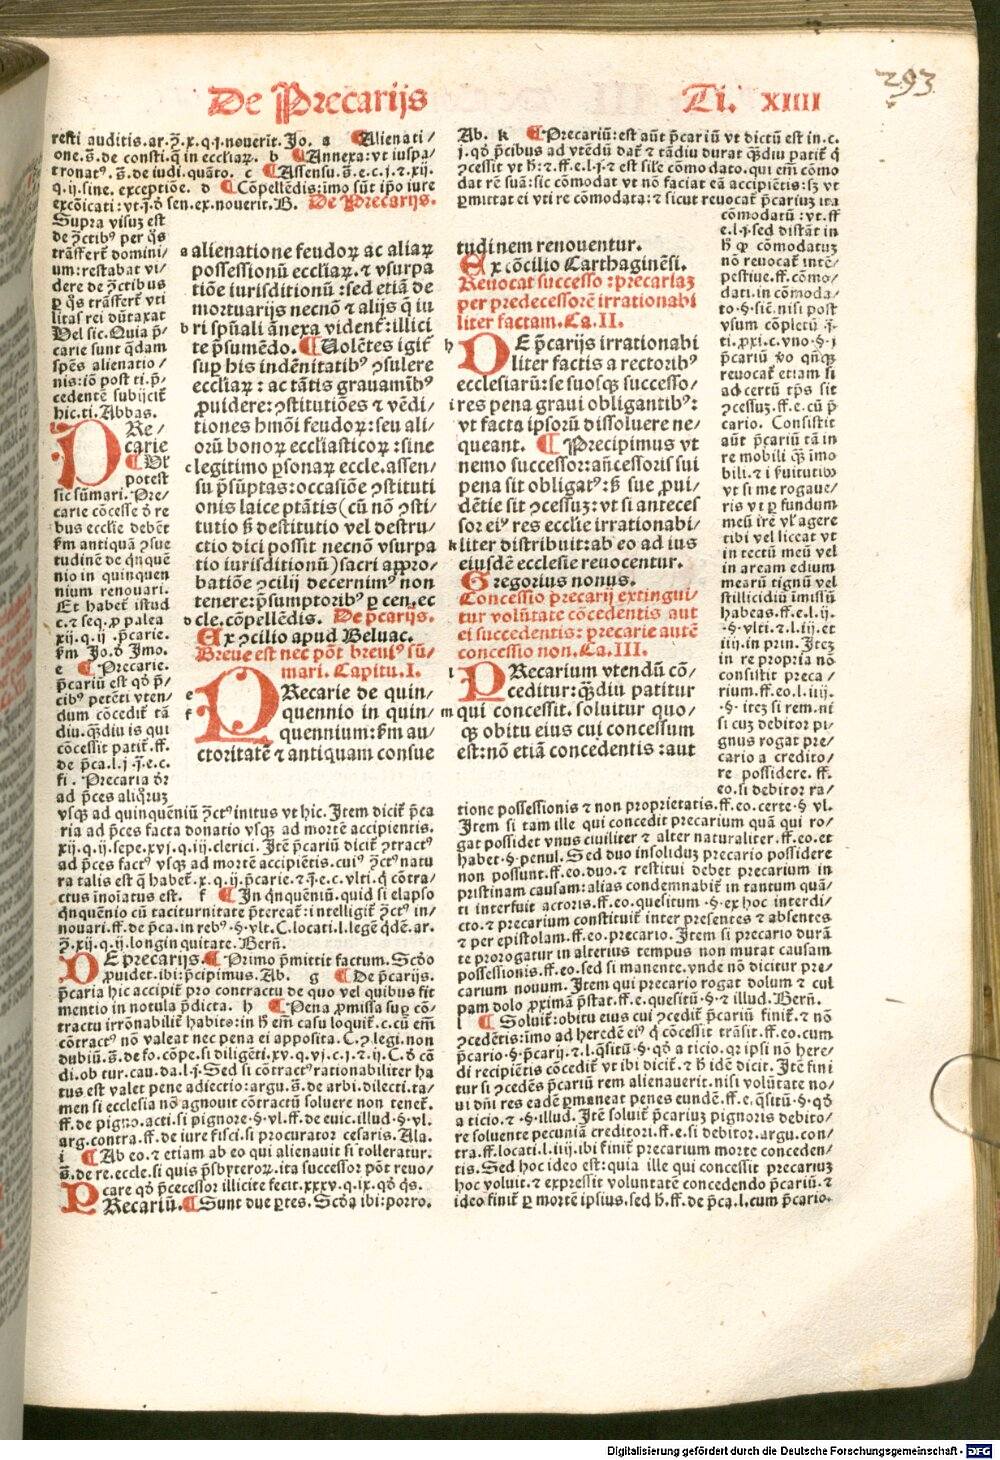 De Precarijs
Ti. XIIII
293
resti auditis.ar.ꝫ.x.q.j.nouerit. Jo. a ¶ Alienati/
one.s̄.de consti.q̄ in eccliaꝝ. b ¶ Annexa:vt iuspa/
tronatꝰ.s̄.de iudi.quāto. c ¶ Assensu.s̄.e.c.j.⁊.xij.
q.ij.sine. exceptiōe. d ¶ Cōpellēdis:imo sūt ip̄o iure
excōicati:vt.j.ð sen.ex.nouerit.B. De Precarijs.
Supra visuꝫ est
de ꝯctibꝰ per q̄s
trāsfert̄ domini/
um:restabat vi/
dere de ꝯctibus
ꝑ q̄s trāsfert̄ vti
litas rei dūtaxat
Vel sic. Quia p̄/
carie sunt q̄dam
spēs alienatio/
nis:iō post ti.p̄/
cedentē subijcit̄
hic.ti.Abbas.
PRe/
carie
potest
sic sūmari. Pre/
carie cōcesse ð re
bus ecclie debēt
km̄ antiquā ꝯsue
tudinē de q̄nquē
nio in quinquen
nium renouari.
Et habet̄ istud
c.⁊ seq.ꝓ palea
xij.q.ij.p̄carie.
km̄ Jo.ð Jmo.
e ¶ Precarie.
p̄cariū est qð p̄/
cibꝰ petēti vten/
dum cōcedit̄ tā
diu.q̄ꝫdiu is qui
cōcessit patit̄.ff.
de p̄ca.l.j.⁊.j.e.c.
fi. Precaria ðr
ad p̄ces aliq̄ruꝫ
a alienatione feudoꝝ ac aliaꝝ
possessionū eccliaꝝ.⁊ vsurpa
tiōe iurisditionū:sed etiā de
mortuarijs necnō ⁊ alijs q̄ iu
b ri spūali ānexa vident̄:illici
te p̄sumēdo. ¶ Uolētes igit̄
suꝑ his indēnitatibꝰ ꝯsulere
eccliaꝝ: ac tātis grauamībꝰ
ꝓuidere:ꝯstitutiōes ⁊ vēdi/
tiones hmōi feudoꝝ:seu ali/
orū bonoꝝ eccliasticoꝝ:sine
c legitimo ꝑsonaꝝ eccle.assen/
su p̄sūptas:occasiōe ꝯstituti
onis laice ptātis(cū nō ꝯsti/
tutio sꝫ destitutio vel destru/
ctio dici possit necnō vsurpa
tio iurisditionū)sacri appro/
batiōe ꝯcilij decernimꝰ non
tenere:p̄sumptoribꝰ ꝑ cen.ec
d cle.cōpellēdis. De p̄carijs.
Ex ꝯcilio apud Beluac.
Breue est nec pōt breuiꝰ sū/
mari. Capitu.I.
e PRecarie de quin/
f quennio in quin/
quennium:km̄ au/
ctoritatē ⁊ antiquam consue
tudinem renouentur.
Ex cōcilio Carthaginēsi.
Reuocat successo:precarias
per predecessorē irrationabi
liter factam.Ca.II.
h DE p̄carijs irrationabi
liter factis a rectoribꝰ
ecclesiarū:se suosqꝫ successo/
i res pena graui obligantibꝰ:
vt facta ipsorū dissoluere ne/
queant. ¶ Precipimus vt
nemo successor:an̄cessoris sui
pena sit obligatꝰ:sꝫ sue ꝓui/
dētie sit ꝯcessuꝫ:vt si anteces
sor eiꝰ res ecclie irrationabi/
k liter distribuit:ab eo ad ius
eiusdē ecclesie reuocentur.
Gregorius nonus.
Concessio precarij extingui/
tur volūtate cōcedentis aut
ei succedentis:precarie autē
concessio non.Ca.III.
l PRecarium vtendū cō/
ceditur:q̄ꝫdiu patitur
m qui concessit. soluitur quo/
qꝫ obitu eius cui concessum
est:nō etiā concedentis:aut
Ab. k ¶ Precariū:est aūt p̄cariū vt dictū est in.c.
j.qð p̄cibus ad vtēdū dat̄ ⁊ tādiu durat q̄ꝫdiu patit̄ q̄
ꝯcessit vt h̄:⁊.ff.e.l.j.⁊ est sile cōmodato.qui em̄ cōmo
dat rē suā:sic cōmodat vt nō faciat eā accipiētis:sꝫ vt
ꝑmittat ei vti re cōmodata:⁊ sicut reuocat̄ p̄cariuꝫ ita
cōmodatū:vt.ff
e.l.j.sed distāt in
h̄ q̄ cōmodatuꝫ
nō reuocat̄ intē/
pestiue.ff.cōmo/
dati.in cōmoda/
to.§.sic̄.nisi post
vsum cōpletū.j̄.
ti.ꝓxi.c.vno.§.j
p̄cariū vō qn̄qꝫ
reuocat̄ etiam si
ad certū tp̄s sit
ꝯcessuꝫ.ff.e.cū p̄
cario. Consistit
aūt p̄cariū tā in
re mobili qꝫ imo
bili.⁊ i ẜuitutiꝰ
vt si me rogaue/
ris vt ꝑ fundum
meū irē vl̓ agere
tibi vel liceat vt
in tectū meū vel
in arcam edium
mearū tignū vel
stillicidiū īmissū
habeas.ff.e.l.ij.
§.vlti.⁊.l.iij.et
iiij.in prin. Iteꝫ
in re propria nō
consistit preca/
rium.ff.eo.l.iiij.
§. iteꝫ si rem.ni
si cuꝫ debitor pi/
gnus rogat pre/
cario a credito/
re possidere. ff.
eo.si debitor ra/
vsqꝫ ad quinquēniū ꝯctꝰinitus vt hic. Item dicit̄ p̄ca
ria ad p̄ces facta donatio vsqꝫ ad mortē accipientis.
xij.q.ij.sepe.xvj.q.iij.clerici. Itē p̄cariū dicit̄ ꝯtractꝰ
ad p̄ces factꝰ vsqꝫ ad mortē accipiētis.cuiꝰ ꝯctꝰ natu
ra talis est q̄ habet̄.x.q.ij.p̄carie.⁊.j̄.e.c.vlti.q̄ cōtra/
ctus inoiatus est. f ¶ In q̄nquēniū.quid si elapso
q̄nquēnio cū taciturnitate p̄tereat̄:intelligit̄ ꝯctꝰ in/
nouari.ff.de p̄ca.in rebꝰ.§.vlt.C.locati.l.legē q̄dē.ar.
ꝫ.xij.q.ij.longinquitate. Bern̄.
DE precarijs. ¶ Primo p̄mittit factum. Scðo
ꝓuidet.ibi:p̄cipimus.Ab. g ¶ De p̄carijs.
p̄caria hic accipit̄ pro contractu de quo vel quibus fit
mentio in notula p̄dicta. h ¶ Pena ꝓmissa suꝑ cō/
tractu irrōnabilit̄ habito:in h̄ em̄ casu loquit̄.c.cū em̄
cōtractꝰ nō valeat nec pena ei apposita.C.ꝫ legi.non
dubiū.s̄.de fo.cōpe.si diligēti.xv.q.vj.c.j.⁊ ij.C.ð cō
di.ob tur.cau.da.l.j. Sed si cōtractꝰrationabiliter ha
tus est valet pene adiectio:argu.s̄.de arbi.dilecti.ta/
men si ecclesia nō agnouit cōtractū soluere non tenet̄.
ff.de pigno.acti.si pignore.§.vl.ff.de euic.illud.§.vl.
arg.contra.ff.de iure fisci.si procurator cesaris. Ala.
i ¶ Ab eo.⁊ etiam ab eo qui alienauit si tolleratur.
s̄.de re.eccle.si quis p̄sbyteroꝝ.ita successor pōt reuo/
care qð p̄cecessor illicite fecit.xxxv.q.ix.qð q̄s.
PRecariū. ¶ Sunt due ꝑtes. Scðā ibi:porro.
tione possessionis ⁊ non proprietatis.ff.eo.certe.§ vl.
Item si tam ille qui concedit precarium quā qui ro/
gat possidet vnus ciuiliter ⁊ alter naturaliter.ff.eo.et
habet.§.penul. Sed duo insoliduꝫ precario possidere
non possunt.ff.eo.duo.⁊ restitui debet precarium in
pristinam causam:alias condemnabit̄ in tantum quā/
ti interfuit actoris.ff.eo.quesitum.§.ex hoc interdi/
cto.⁊ precarium constituit̄ inter presentes ⁊ absentes
⁊ per epistolam.ff.eo.precario. Item si precario durā
te prorogatur in alterius tempus non mutat causam
possessionis.ff.eo.sed si manente.vnde nō dicitur pre/
carium nouum. Item qui precario rogat dolum ⁊ cul
pam dolo ꝓximā p̄stat.ff.e.quesitū.§.⁊ illud. Bern̄.
l ¶ Soluit̄:obitu eius cui ꝯcedit̄ p̄cariū finit̄.⁊ nō
ꝯcedētis:imo ad heredē eiꝰ q̄ cōcessit trāsit.ff.eo.cum
p̄cario.§.p̄carij.⁊.l.q̄sitū.§.qð a ticio.qꝛ ipsi nō here/
di recipiētis cōcedit̄ vt ibi dicit̄.⁊ h̄ idē dicit. Itē fini
tur si ꝯcedēs p̄cariū rem alienauerit.nisi volūtate no/
ui dn̄i res eadē ꝑmaneat penes eundē.ff.e.q̄sitū.§.qð
a ticio.⁊.§.illud. Itē soluit̄ p̄cariuꝫ pignoris debito/
re soluente pecuniā creditori.ff.e.si debitor.argu.con/
tra.ff.locati.l.iiij.ibi finit̄ precarium morte conceden/
tis. Sed hoc ideo est:quia ille qui concessit precariuꝫ
hoc voluit.⁊ expressit voluntatē concedendo p̄cariū.⁊
ideo finit̄ ꝑ mortē ipsius.sed h̄.ff.de p̄ca.l.cum p̄cario.
Digitalisierung gefördert durch die Deutsche Forschungsgemeinschaft - DFG